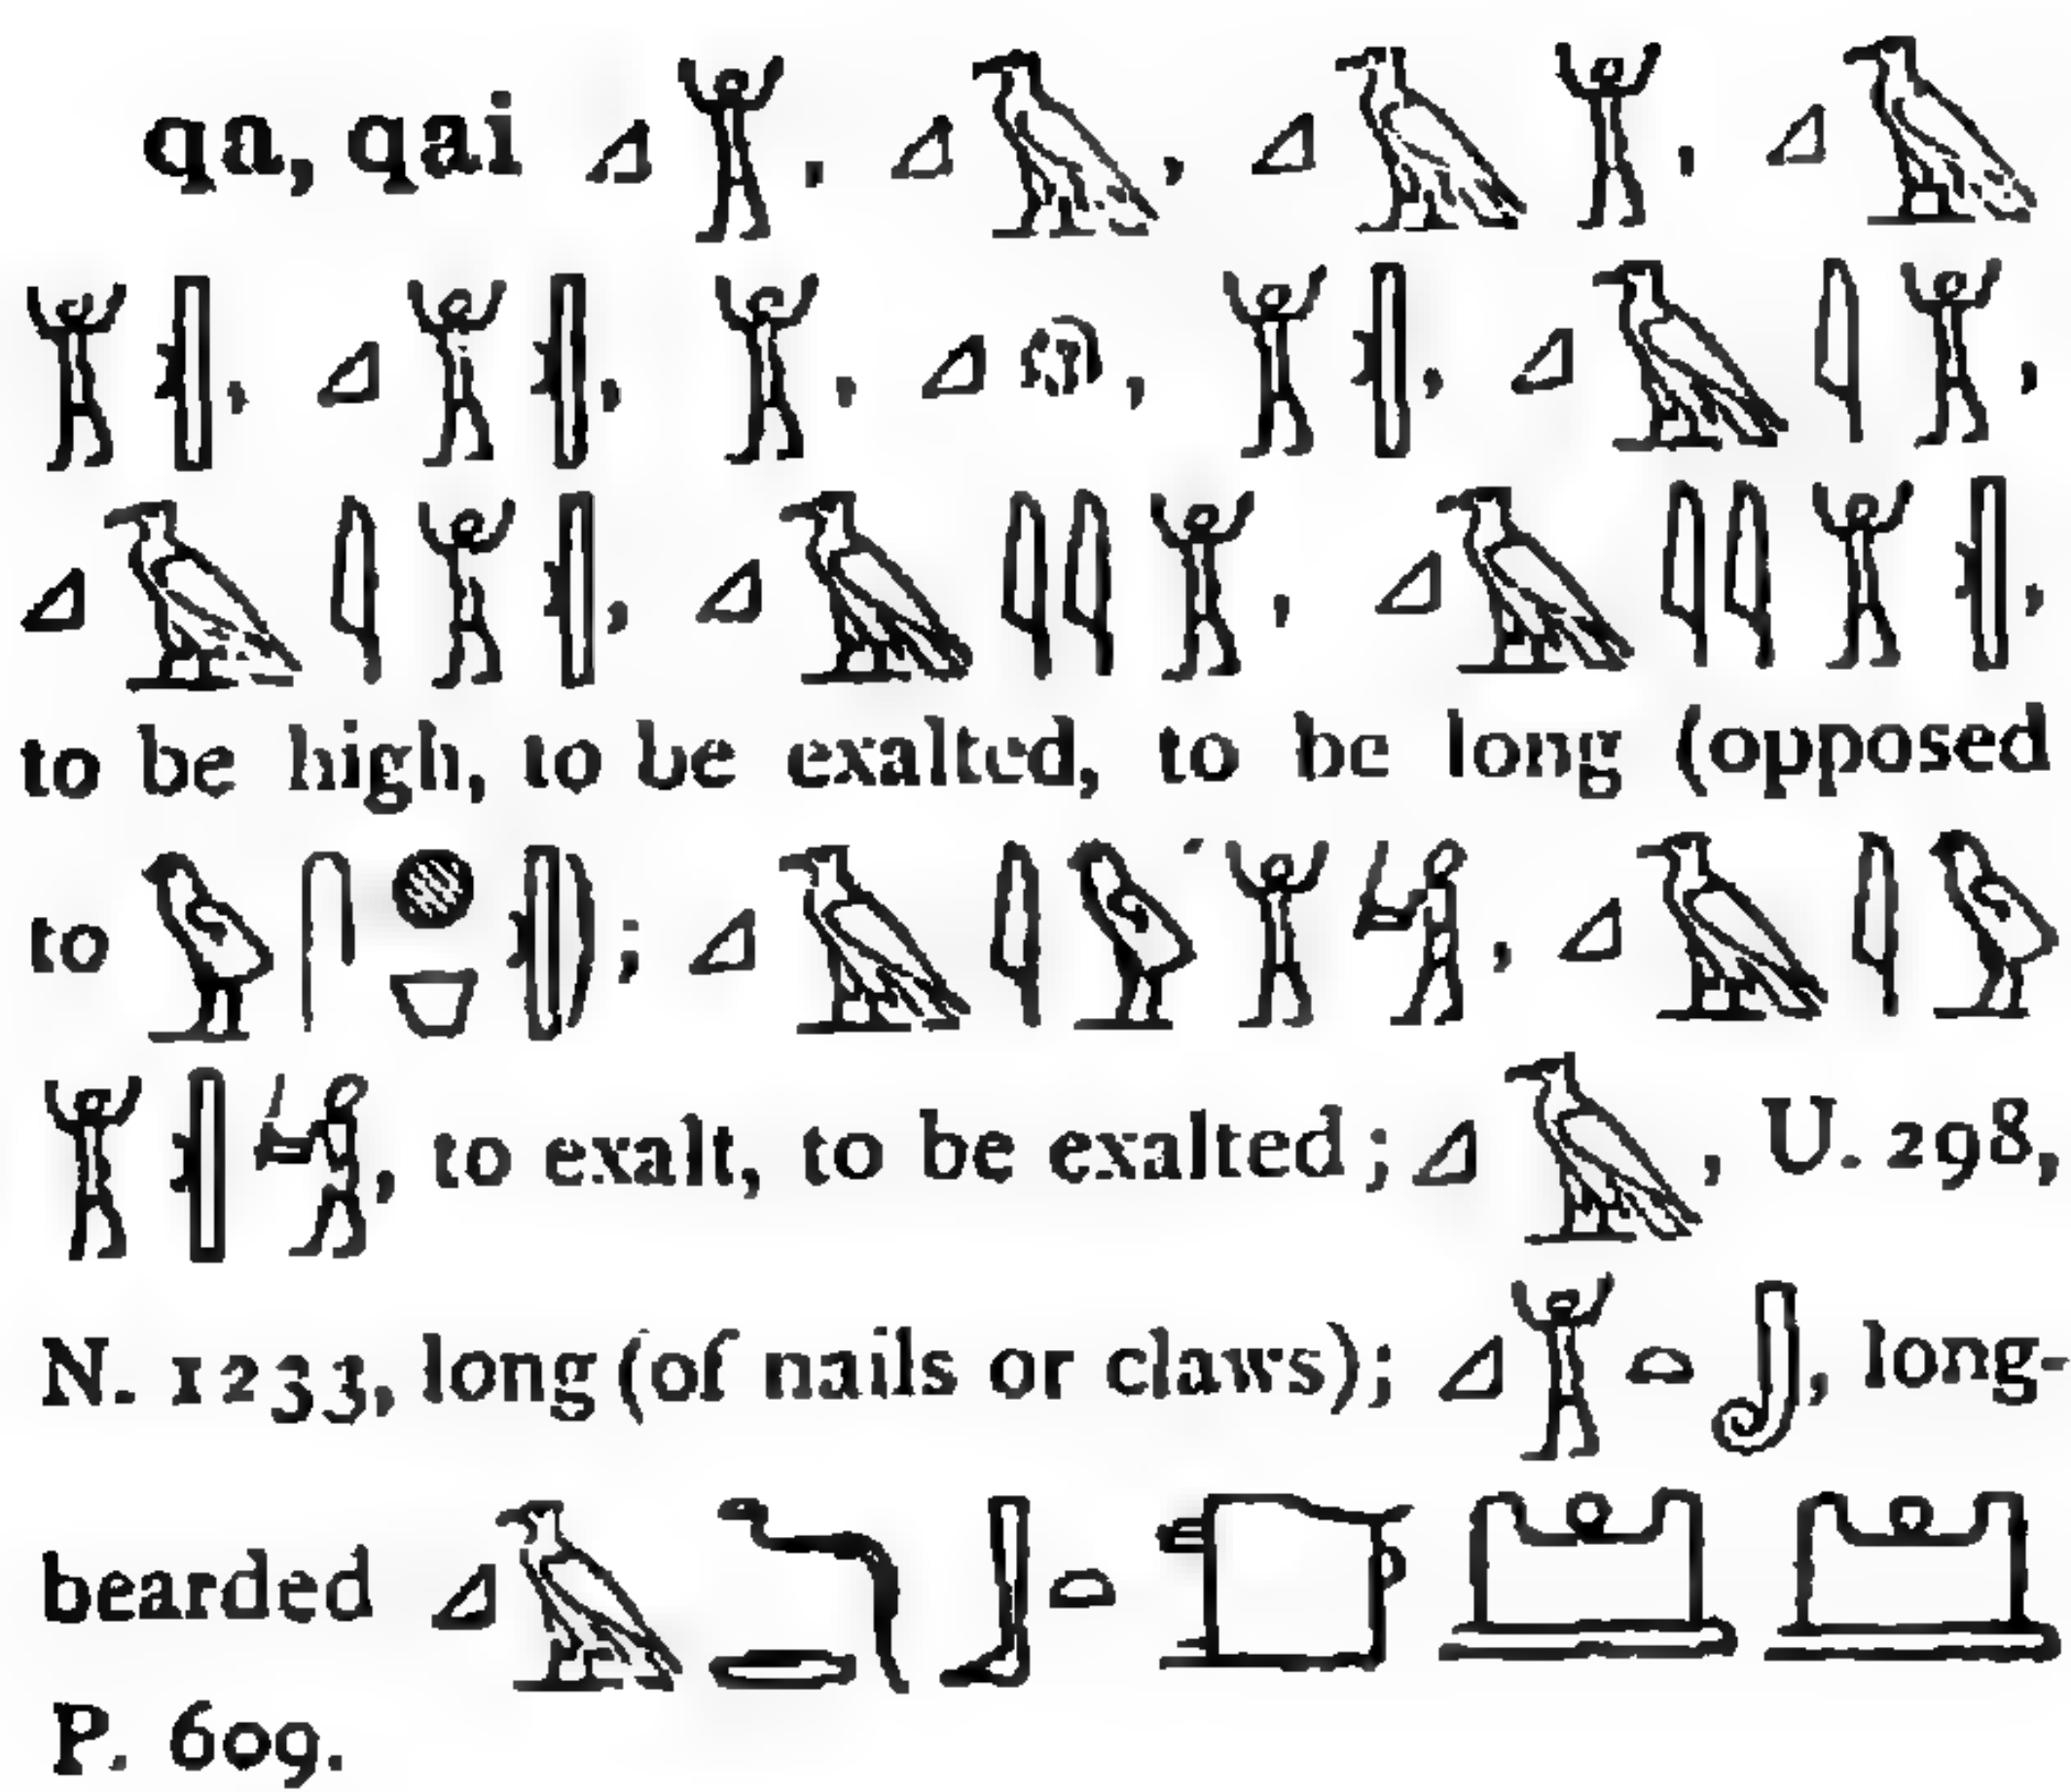 qa, qai 𓈎𓀠, 𓈎𓄿, 𓈎𓄿𓀠, 𓈎𓄿
𓀠𓏜, 𓈎𓀠𓏜, 𓀠, 𓈎, 𓀠𓏜, 𓈎𓄿𓇋𓀠,
𓈎𓄿𓇋𓀠𓏜, 𓈎𓄿𓇋𓇋𓀠, 𓈎𓄿𓇋𓇋𓀠𓏜,
to be high, to be exalted, to be long (opposed
to 𓅱𓋴𓐍𓎺𓏜; 𓈎𓄿𓇋𓅱𓀠𓀜, 𓈎𓄿𓇋𓅱
𓀠𓏜𓀜, to exalt, to be exalted; 𓈎𓄿, U. 298,
N. 1233, long (of nails or claws); 𓈎𓀠𓏏, long-
bearded 𓈎𓄿𓃀𓏏
P. 609.